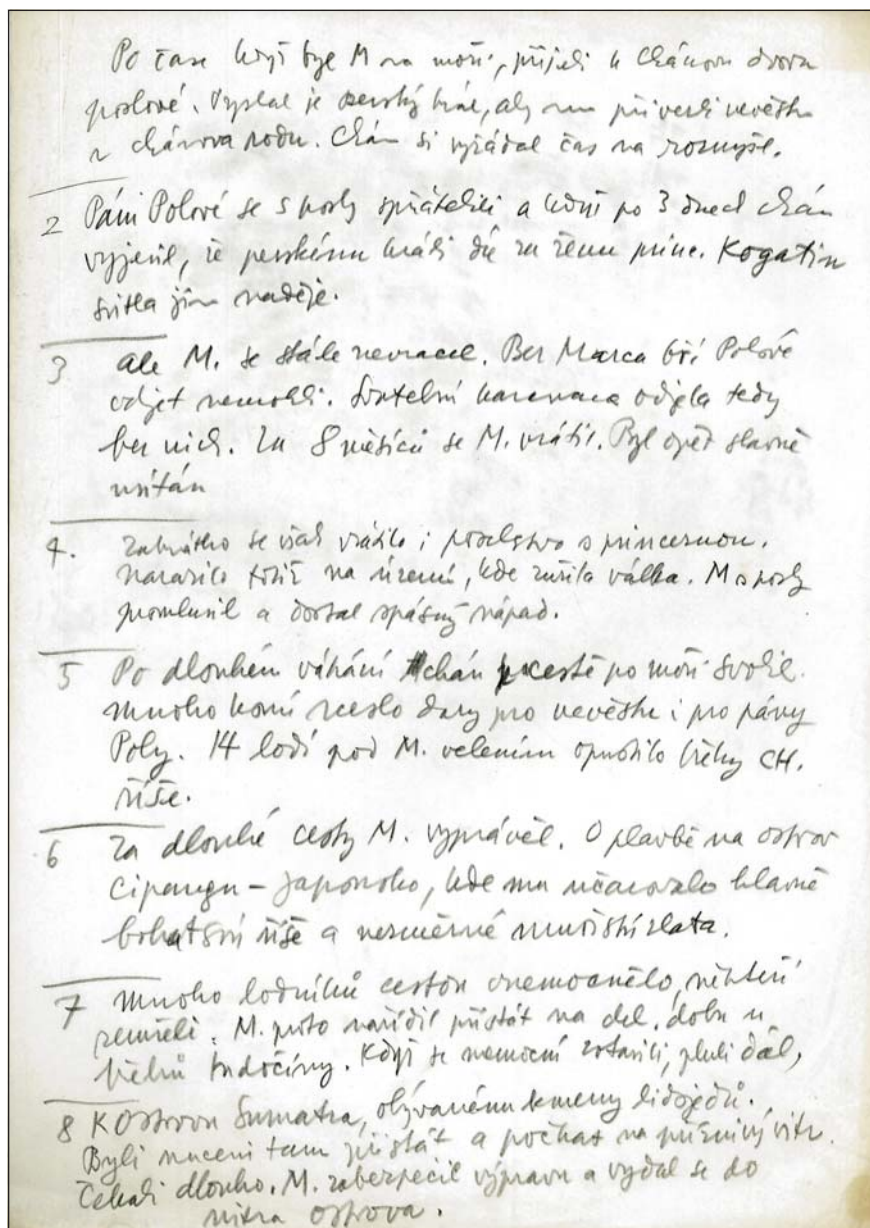 Po čase když byl M na moři, přijeli k Chánovu dvoru
poslové. Vyslal je perský král, aby mu přivedli nevěstu
z chánova rodu. Chán si vyžádal čas na rozmyšl.
2 Páni Polové se s posly spřátelili a když po 3 dnech chán
vyjevil, že perskému králi dá za ženu princ. Kogatin
svitla jim naděje.
3 ale M. se stále nevracel. Bez Marca bří Polové
odjet nemohli. Svatební karavana odjela tedy
bez nich. Za 8 měsíců se M. vrátil. Byl opět slavně
uvítán
4. Zakrátko se však vrátilo i poselstvo s princeznou.
narazilo totiž na území, kde zuřila válka. M s posly
promluvil a dostal spásný nápad.
5 Po dlouhém váhání chán k cestě po moři svolil.
mnoho koní neslo dary pro nevěstu i pro pány
Poly. 14 lodí pod M. velením opustilo břehy CH.
říše.
6 Za dlouhé cesty M. vyprávěl. O plavbě na ostrov
Cipangu – Japonsko, kde mu učarovalo hlavně
bohatství říše a nesmírné množství zlata.
7 mnoho lodníků cestou onemocnělo, někteří
zemřeli. M. proto nařídil přistát na del. dobu u
břehů Indočíny. Když se nemocní zotavili, pluli dál,
8 K Ostrovu Sumatra, obývanému kmeny lidojedů.
Byli nuceni tam přistát a počkat na příznivý vítr.
Čekali dlouho. M. zabezpečil výpravu a vydal se do
nitra ostrova.